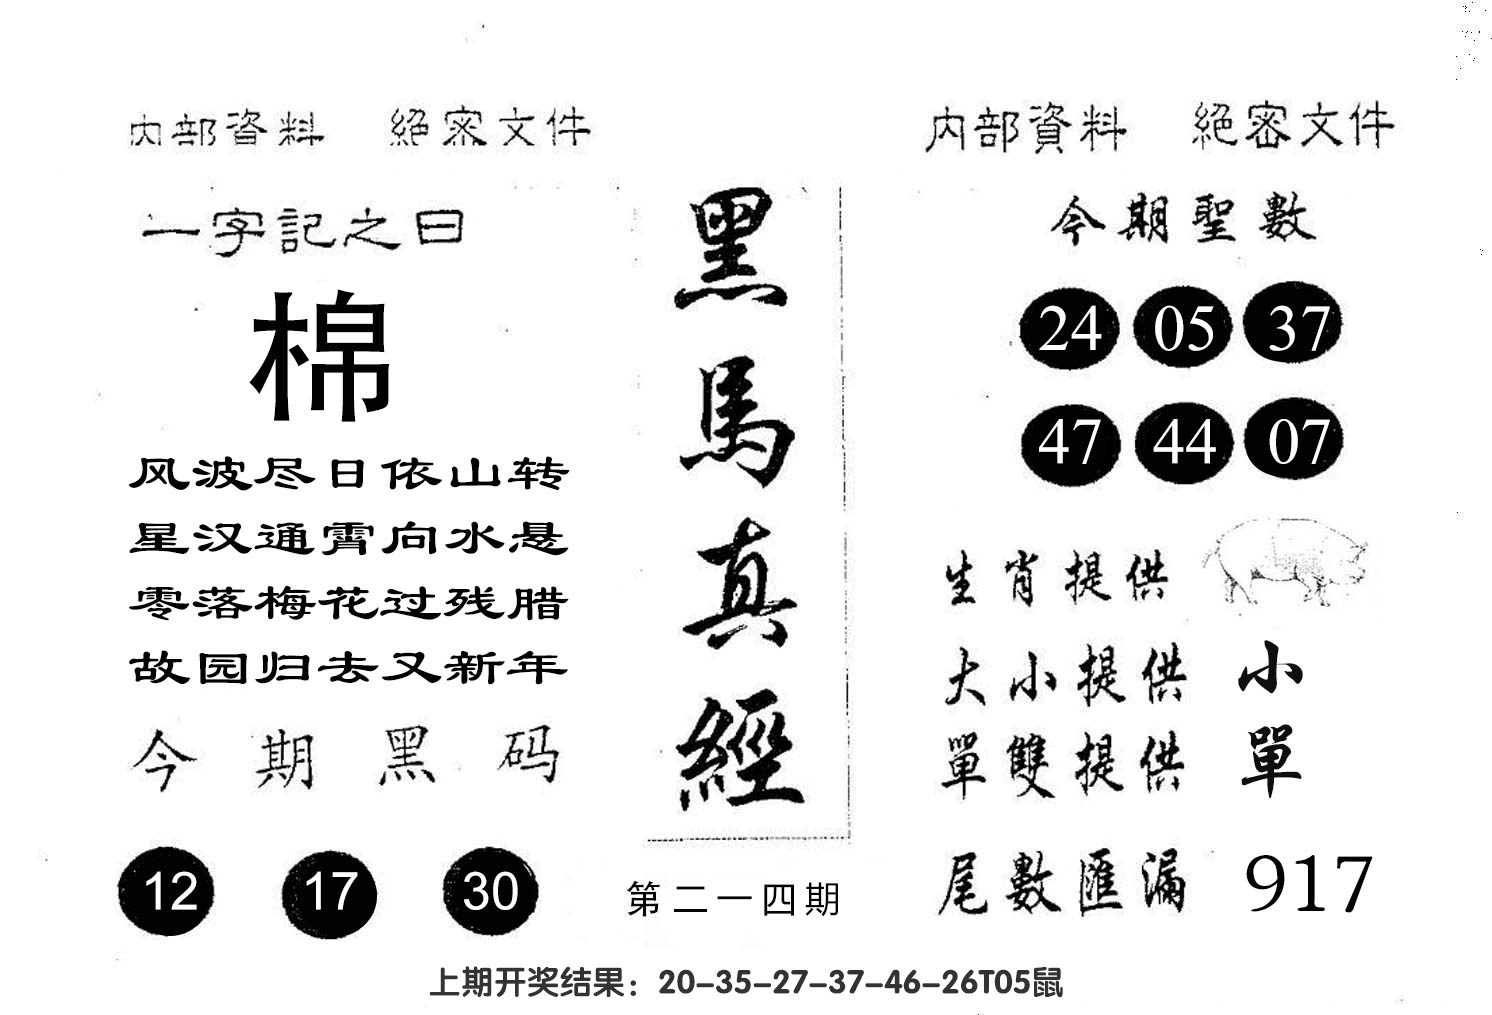 内部資料 絕密文件
一字記之曰
棉
风波尽日依山转
星汉通霄向水悬
零落梅花过残腊
故园归去又新年
今期黑码
12 17 30
黑馬真經
第二一四期
内部資料 絕密文件
今期聖數
24 05 37
47 44 07
生肖提供
大小提供 小
單雙提供 單
尾數匯漏 917
上期开奖结果：20-35-27-37-46-26T05鼠